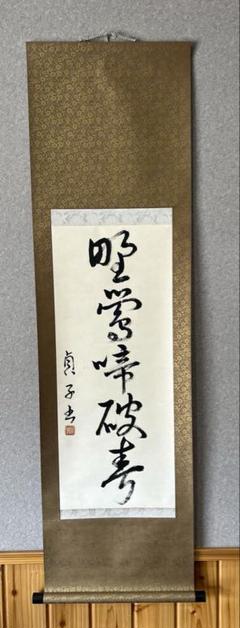 野鶯啼破春
貞子書